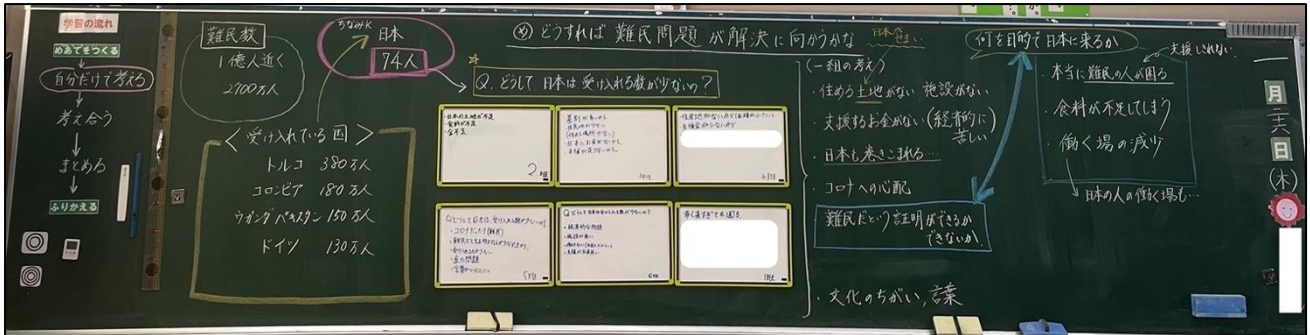 学習の流れ
めあてをつくる
自分だけで考える
考え合う
まとめる
ふりかえる
難民数
1億人近く
2700万人
ちなみに
日本
74人
<受け入れている国>
トルコ 380万人
コロンビア 180万人
ウガンダ パキスタン 150万人
ドイツ 130万人
め どうすれば難民問題が解決に向かうかな
Q. どうして、日本は受け入れる数が少ないの？
・日本の土地が不足
・食料が不足
・金不足
2班
4班
Qどうして日本は、受け入れる数が少ないの？
・金の問題
5班
Qどうして日本は受け入れる数が少ないの？
・経済的な問題
・施設が無い
6班
(一組の考え)
・住める土地がない 施設がない
・支援するお金がない(経済的に苦しい)
・日本も巻きこまれる…
・コロナへの心配
難民だという証明ができるか
できないか
・文化のちがい、言葉
何を目的で日本に来るか
支援しきれない
・本当に難民の人が困る
・食料が不足してしまう
働く場の減少
日本の人の働く場も…
月
日
(木)